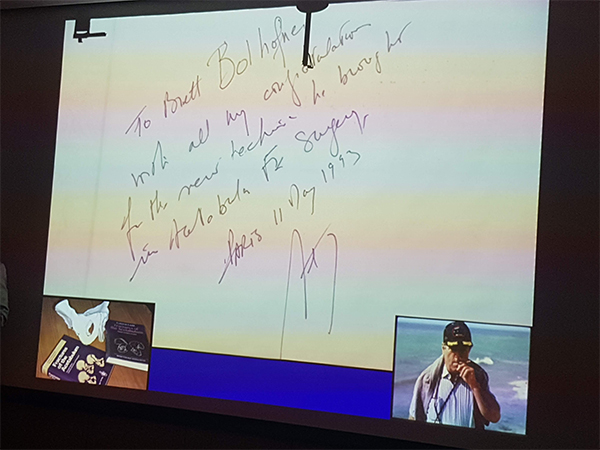 To Brett Bolhofner
with all my congratulation
for the new technic he brought
in Acetabular FR Surgery,
PARIS 11 May 1993
Fractures
of the
Acetabulum